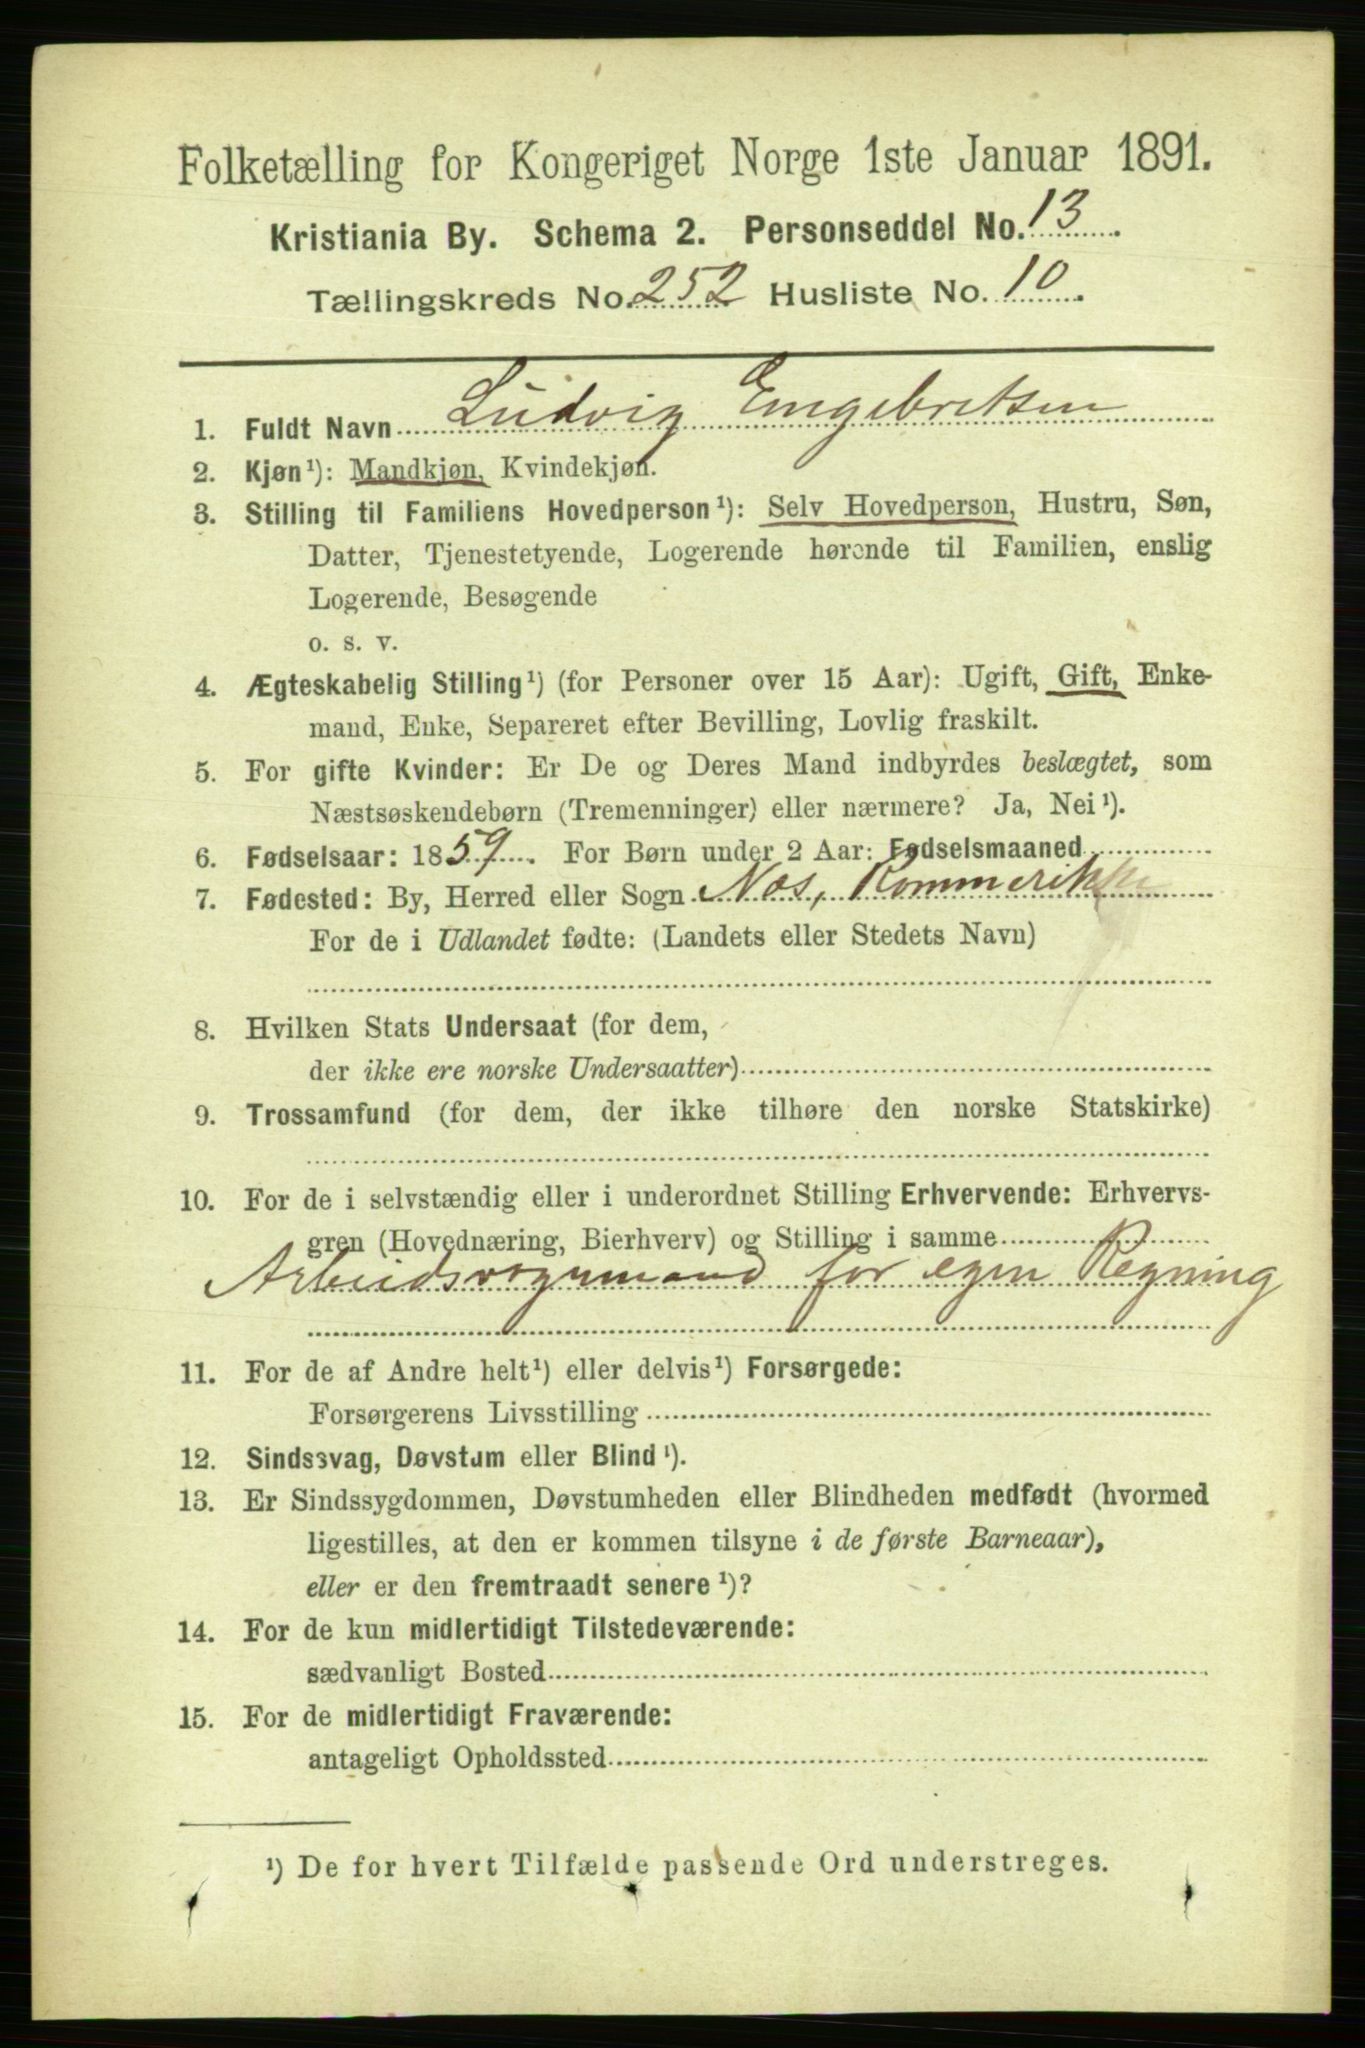 Folketælling for Kongeriget Norge 1ste Januar 1891.
Kristiania By. Schema 2. Personseddel No. 13.
Tællingskreds No. 252 Husliste No. 10.
1. Fuldt Navn Ludvig Engebritsen
2. Kjøn¹): Mandkjøn, Kvindekjøn.
3. Stilling til Familiens Hovedperson¹): Selv Hovedperson, Hustru, Søn,
Datter, Tjenestetyende, Logerende hørende til Familien, enslig
Logerende, Besøgende
o. s. v.
4. Ægteskabelig Stilling¹) (for Personer over 15 Aar): Ugift, Gift, Enke-
mand, Enke, Separeret efter Bevilling, Lovlig fraskilt.
5. For gifte Kvinder: Er De og Deres Mand indbyrdes beslægtet, som
Næstsøskendebørn (Tremenninger) eller nærmere? Ja, Nei¹).
6. Fødselsaar: 1859. For Børn under 2 Aar: Fødselsmaaned
7. Fødested: By, Herred eller Sogn Nes, Rommerikke
For de i Udlandet fødte: (Landets eller Stedets Navn)
8. Hvilken Stats Undersaat (for dem,
der ikke ere norske Undersaatter)
9. Trossamfund (for dem, der ikke tilhøre den norske Statskirke)
10. For de i selvstændig eller i underordnet Stilling Erhvervende: Erhvervs-
gren (Hovednæring, Bierhverv) og Stilling i samme
Arbeidsvognmand for egen Regning
11. For de af Andre helt¹) eller delvis¹) Forsørgede:
Forsørgerens Livsstilling
12. Sindssvag, Døvstum eller Blind¹).
13. Er Sindssygdommen, Døvstumheden eller Blindheden medfødt (hvormed
ligestilles, at den er kommen tilsyne i de første Barneaar),
eller er den fremtraadt senere¹)?
14. For de kun midlertidigt Tilstedeværende:
sædvanligt Bosted
15. For de midlertidigt Fraværende:
antageligt Opholdssted
¹) De for hvert Tilfælde passende Ord understreges.